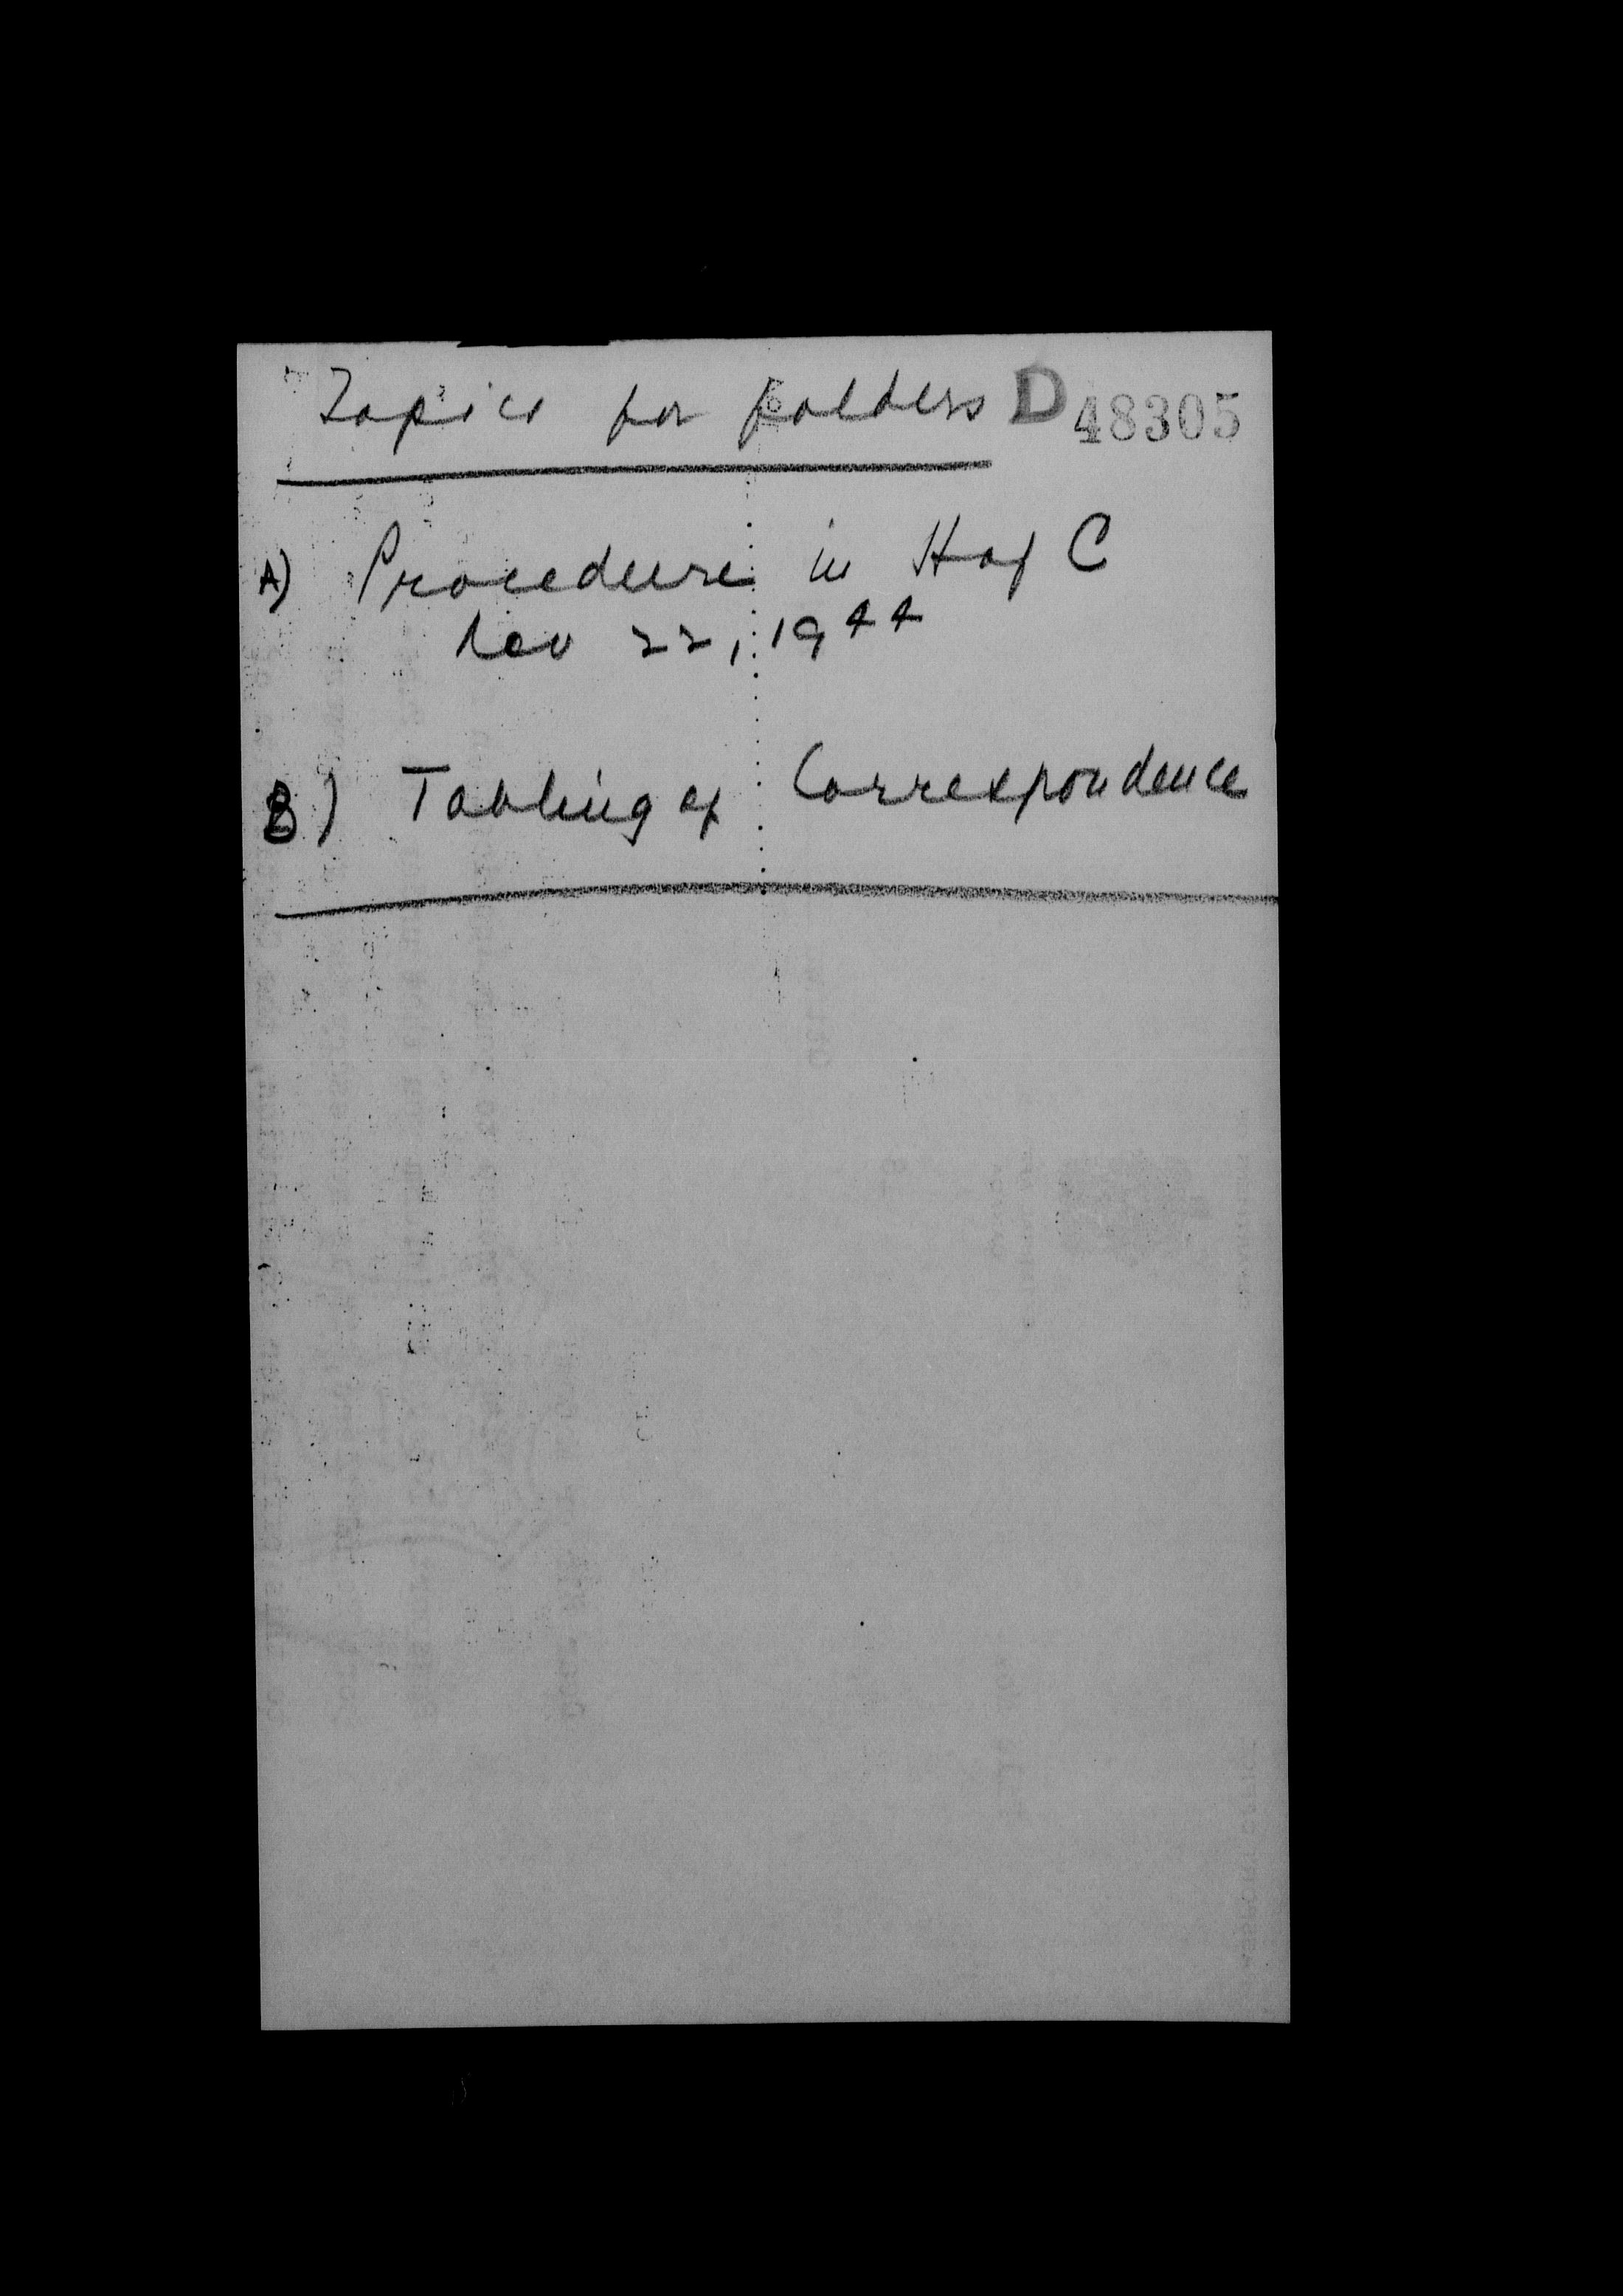 Topics for folders D 48305
A) Procedure in H of C
Nov 22, 1944
B) Tabling of Correspondence